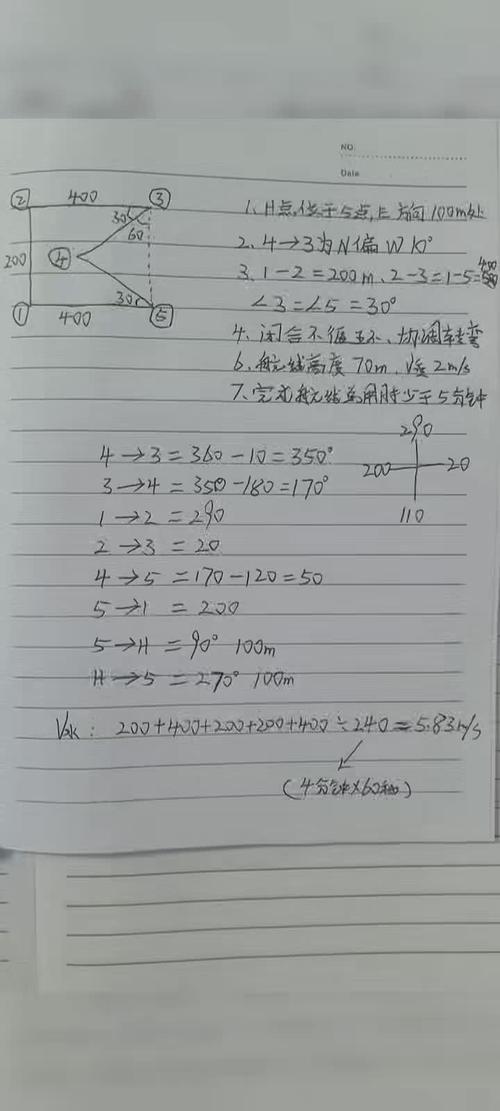 NO.
Date
② 400 ③
30
60
200 ④
30
① 400 ⑤
1. H点位于5点, E方向100m处
2. 4→3为N偏W 10°
3. 1-2=200m、2-3=1-5=400
∠3=∠5=30°
4. 闭合不循环、协调转弯
6. 航线高度70m, V垂2m/s
7. 完成航线总用时少于5分钟
290
200 20
110
4→3=360-10=350°
3→4=350-180=170°
1→2=290
2→3=20
4→5=170-120=50
5→1=200
5→H=90° 100m
H→5=270° 100m
200+400+200+200+400÷240=5.83m/s
(4分钟×60秒)